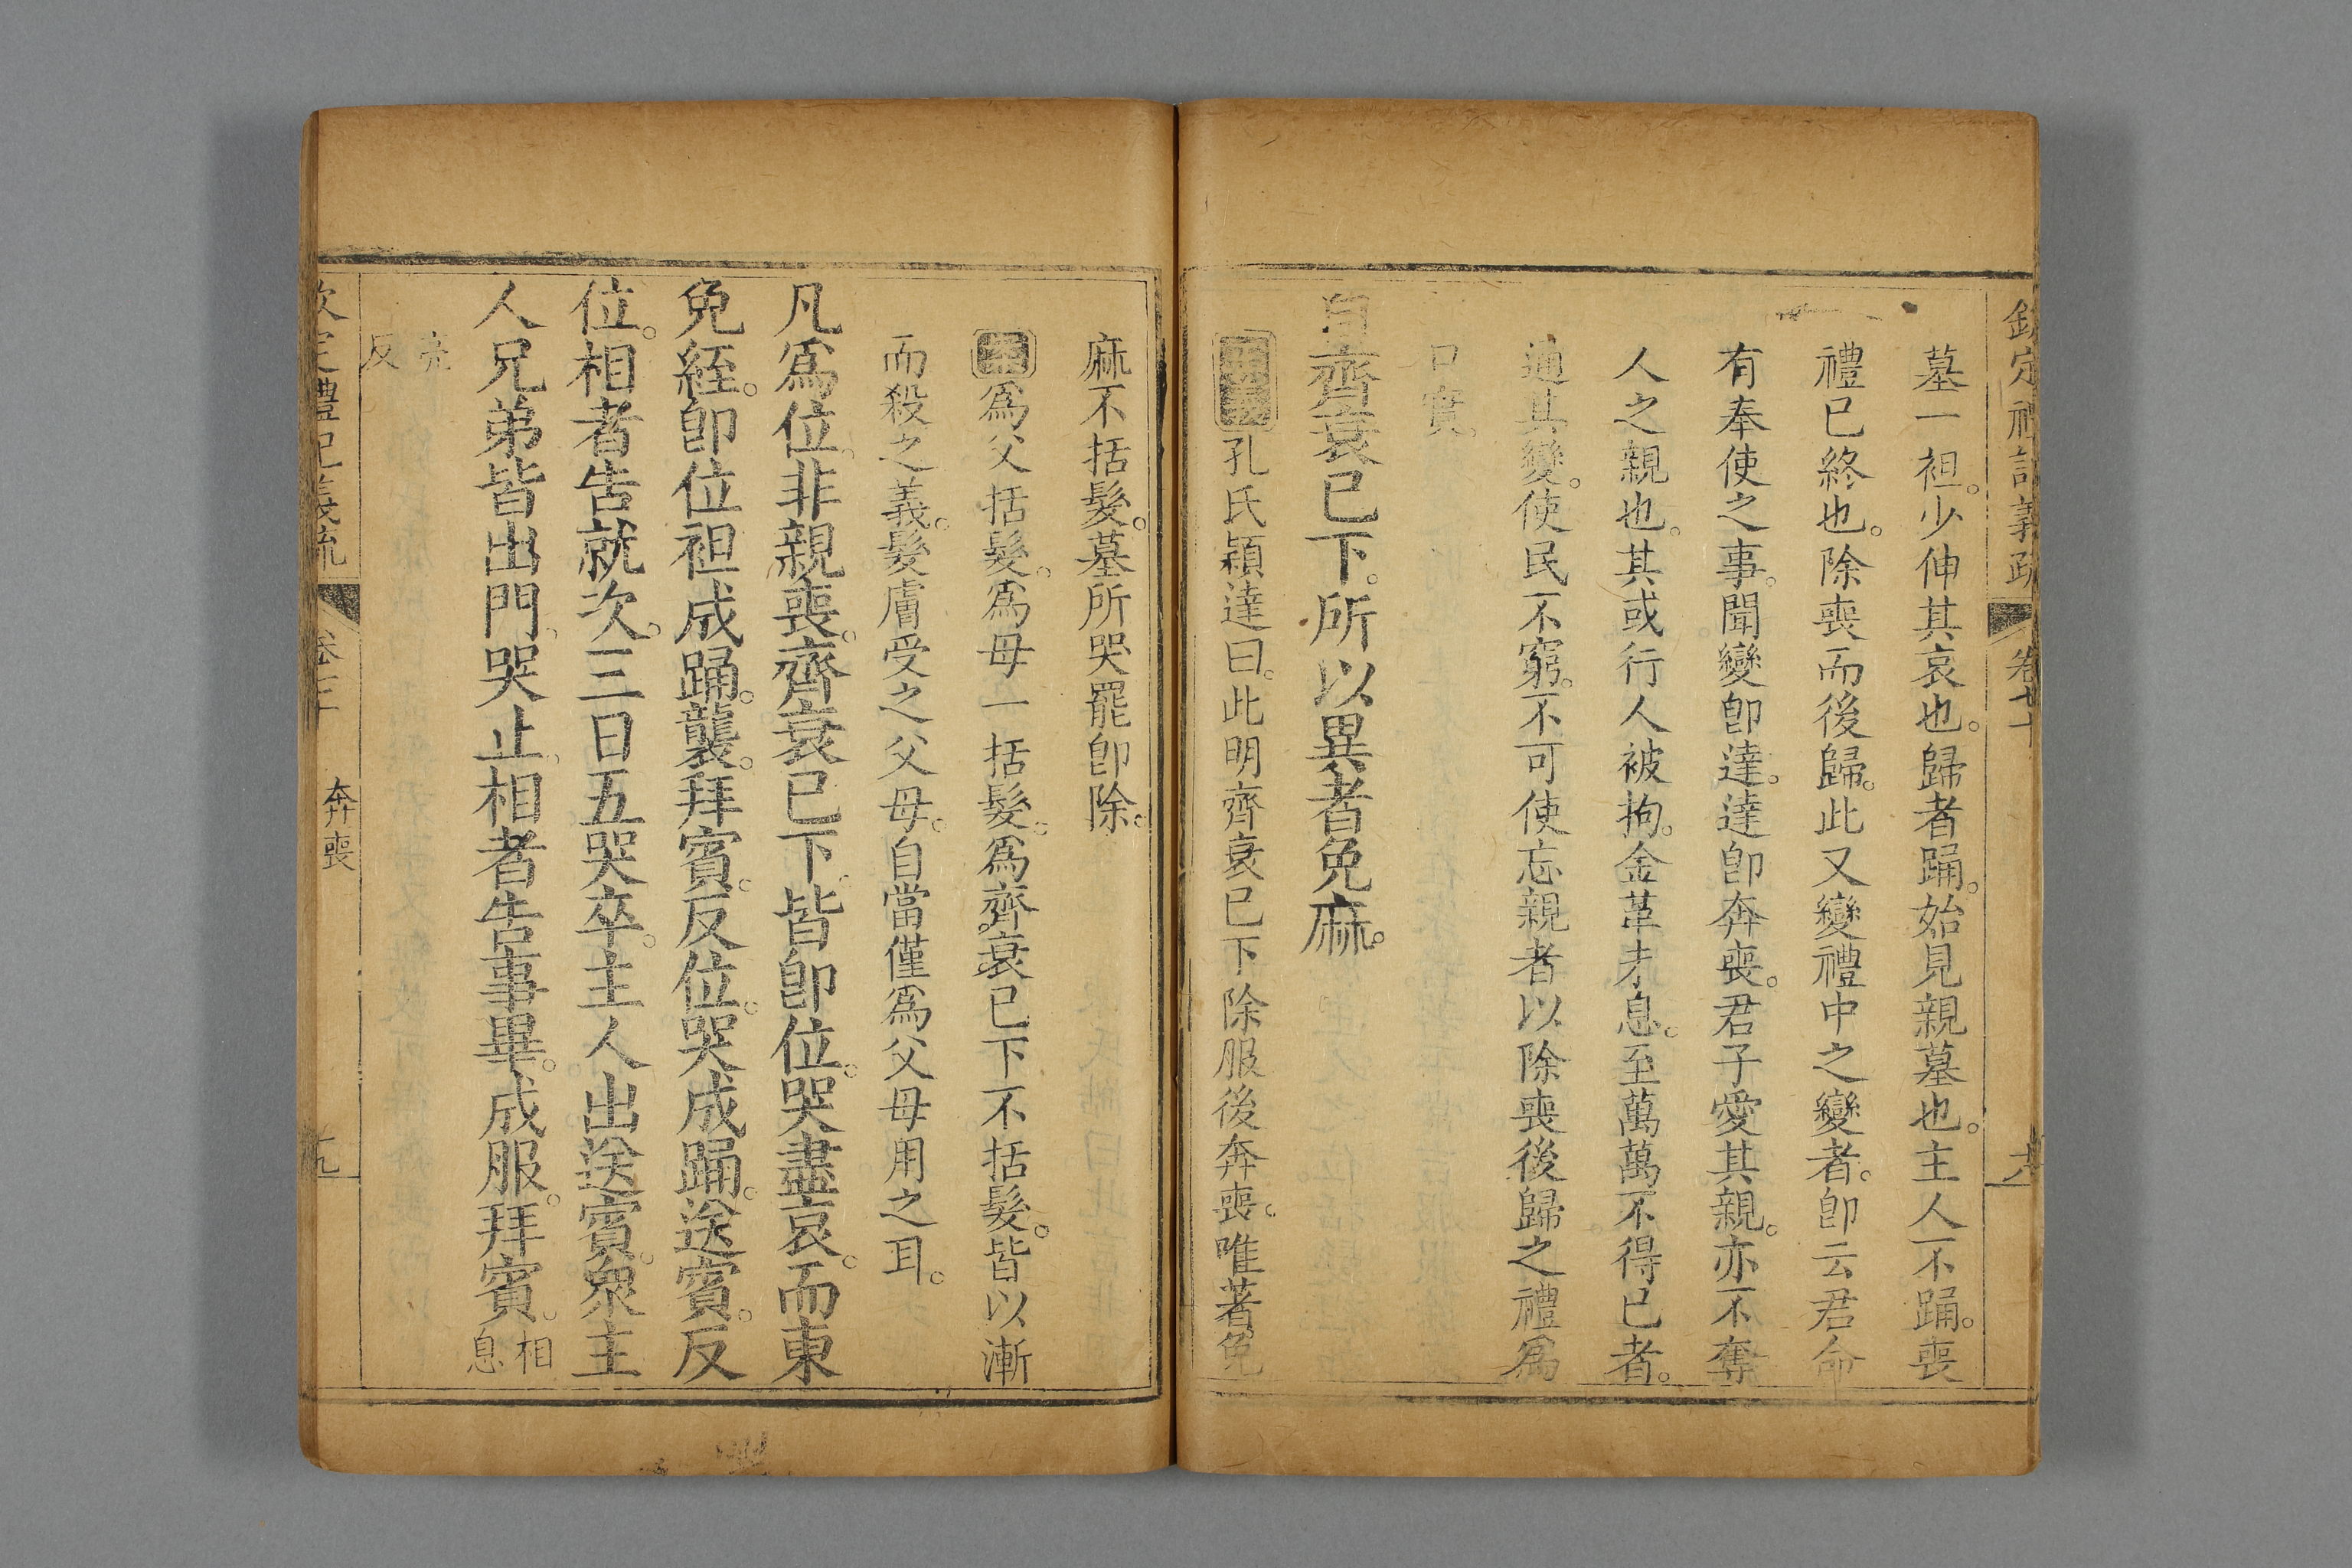 欽定禮記義疏 卷七十
墓一袒。少伸其哀也。歸者踊。始見親墓也。主人不踊。喪
禮已終也。除喪而後歸。此又變禮中之變者。卽云君命
有奉使之事。聞變卽達。達卽奔喪。君子愛其親。亦不奪
人之親也。其或行人被拘。金革未息。至萬萬不得已者。
通其變。使民不窮。不可使忘親者以除喪後歸之禮爲
口實。
自齊衰已下。所以異者免麻。
孔氏穎達曰。此明齊衰已下除服後奔喪。唯著免
麻不括髮。墓所哭罷卽除。
爲父括髮。爲母一括髮。爲齊衰已下不括髮。皆以漸
而殺之義。髮膚受之父母。自當僅爲父母用之耳。
凡爲位。非親喪。齊衰已下。皆卽位。哭盡哀。而東
免絰。卽位袒成踊。襲。拜賓。反位。哭成踊。送賓。反
位。相者告就次。三日五哭卒。主人出送賓。衆主
人兄弟皆出門。哭止。相者告事畢。成服。拜賓。相息
亮反
欽定禮記義疏 奔喪